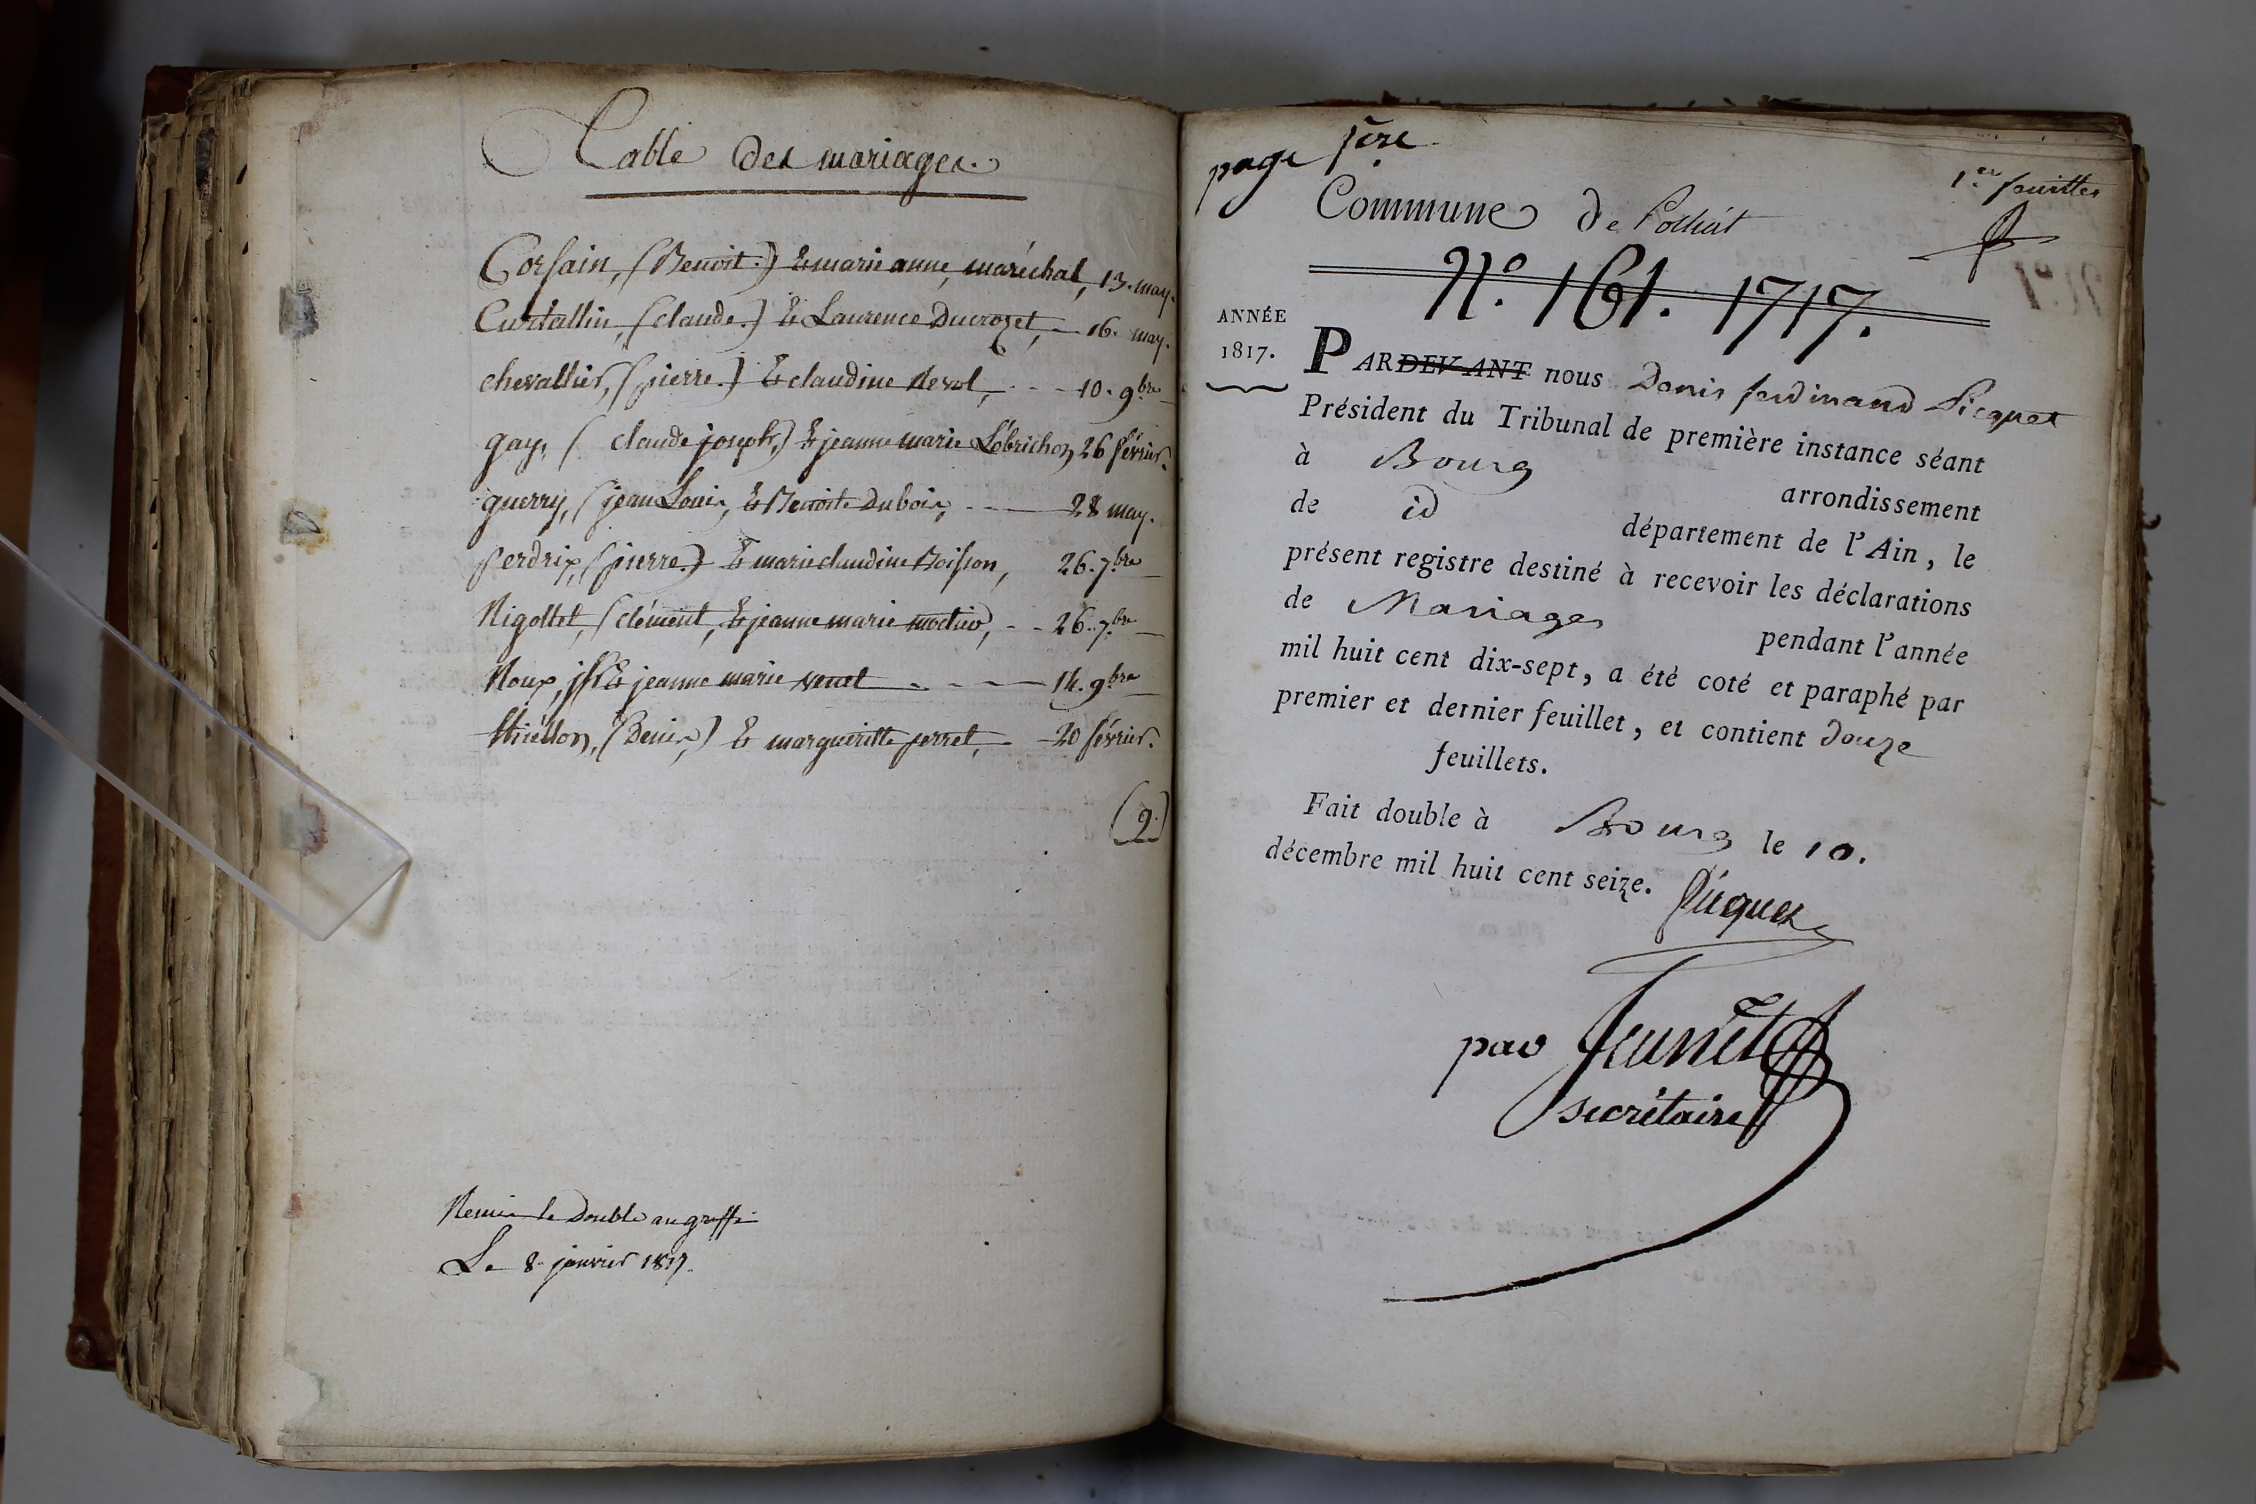 Table des mariages.
Corsain, (Benoit.) & marie anne, maréchal, 13. may.
Curtallin, (claude.) & Laurence Ducrozet, 16. may.
chevallier, (pierre.) & claudine Revol, 10. 9bre
gay, ( claude joseph,) & jeanne marie Lébrichon, 26 février.
guerry, (jean Louis, & Benoite Dubois, 28 may.
perdrix, (pierre.) & marie claudine Boisson, 26. 7bre
Rigottet, (clément, & jeanne marie 26. 7bre
Roux, & jeanne marie 14. 9bre
(Denis,) & margueritte perret, 20 février.
(9.)
Remis le Double au greffe
Le 8 janvier 1817.
page 1ère
1er feuillet
Commune de Polliat
N° 161. 1717.
N°1
ANNÉE
1817.
PARDEVANT nous Denis ferdinand Picquet
Président du Tribunal de première instance séant
à Bourg arrondissement
de id département de l'Ain, le
présent registre destiné à recevoir les déclarations
de Mariages pendant l'année
mil huit cent dix-sept, a été coté et paraphé par
premier et dernier feuillet, et contient douze
feuillets.
Fait double à Bourg le 10.
décembre mil huit cent seize. Picquet
par
secrétaire